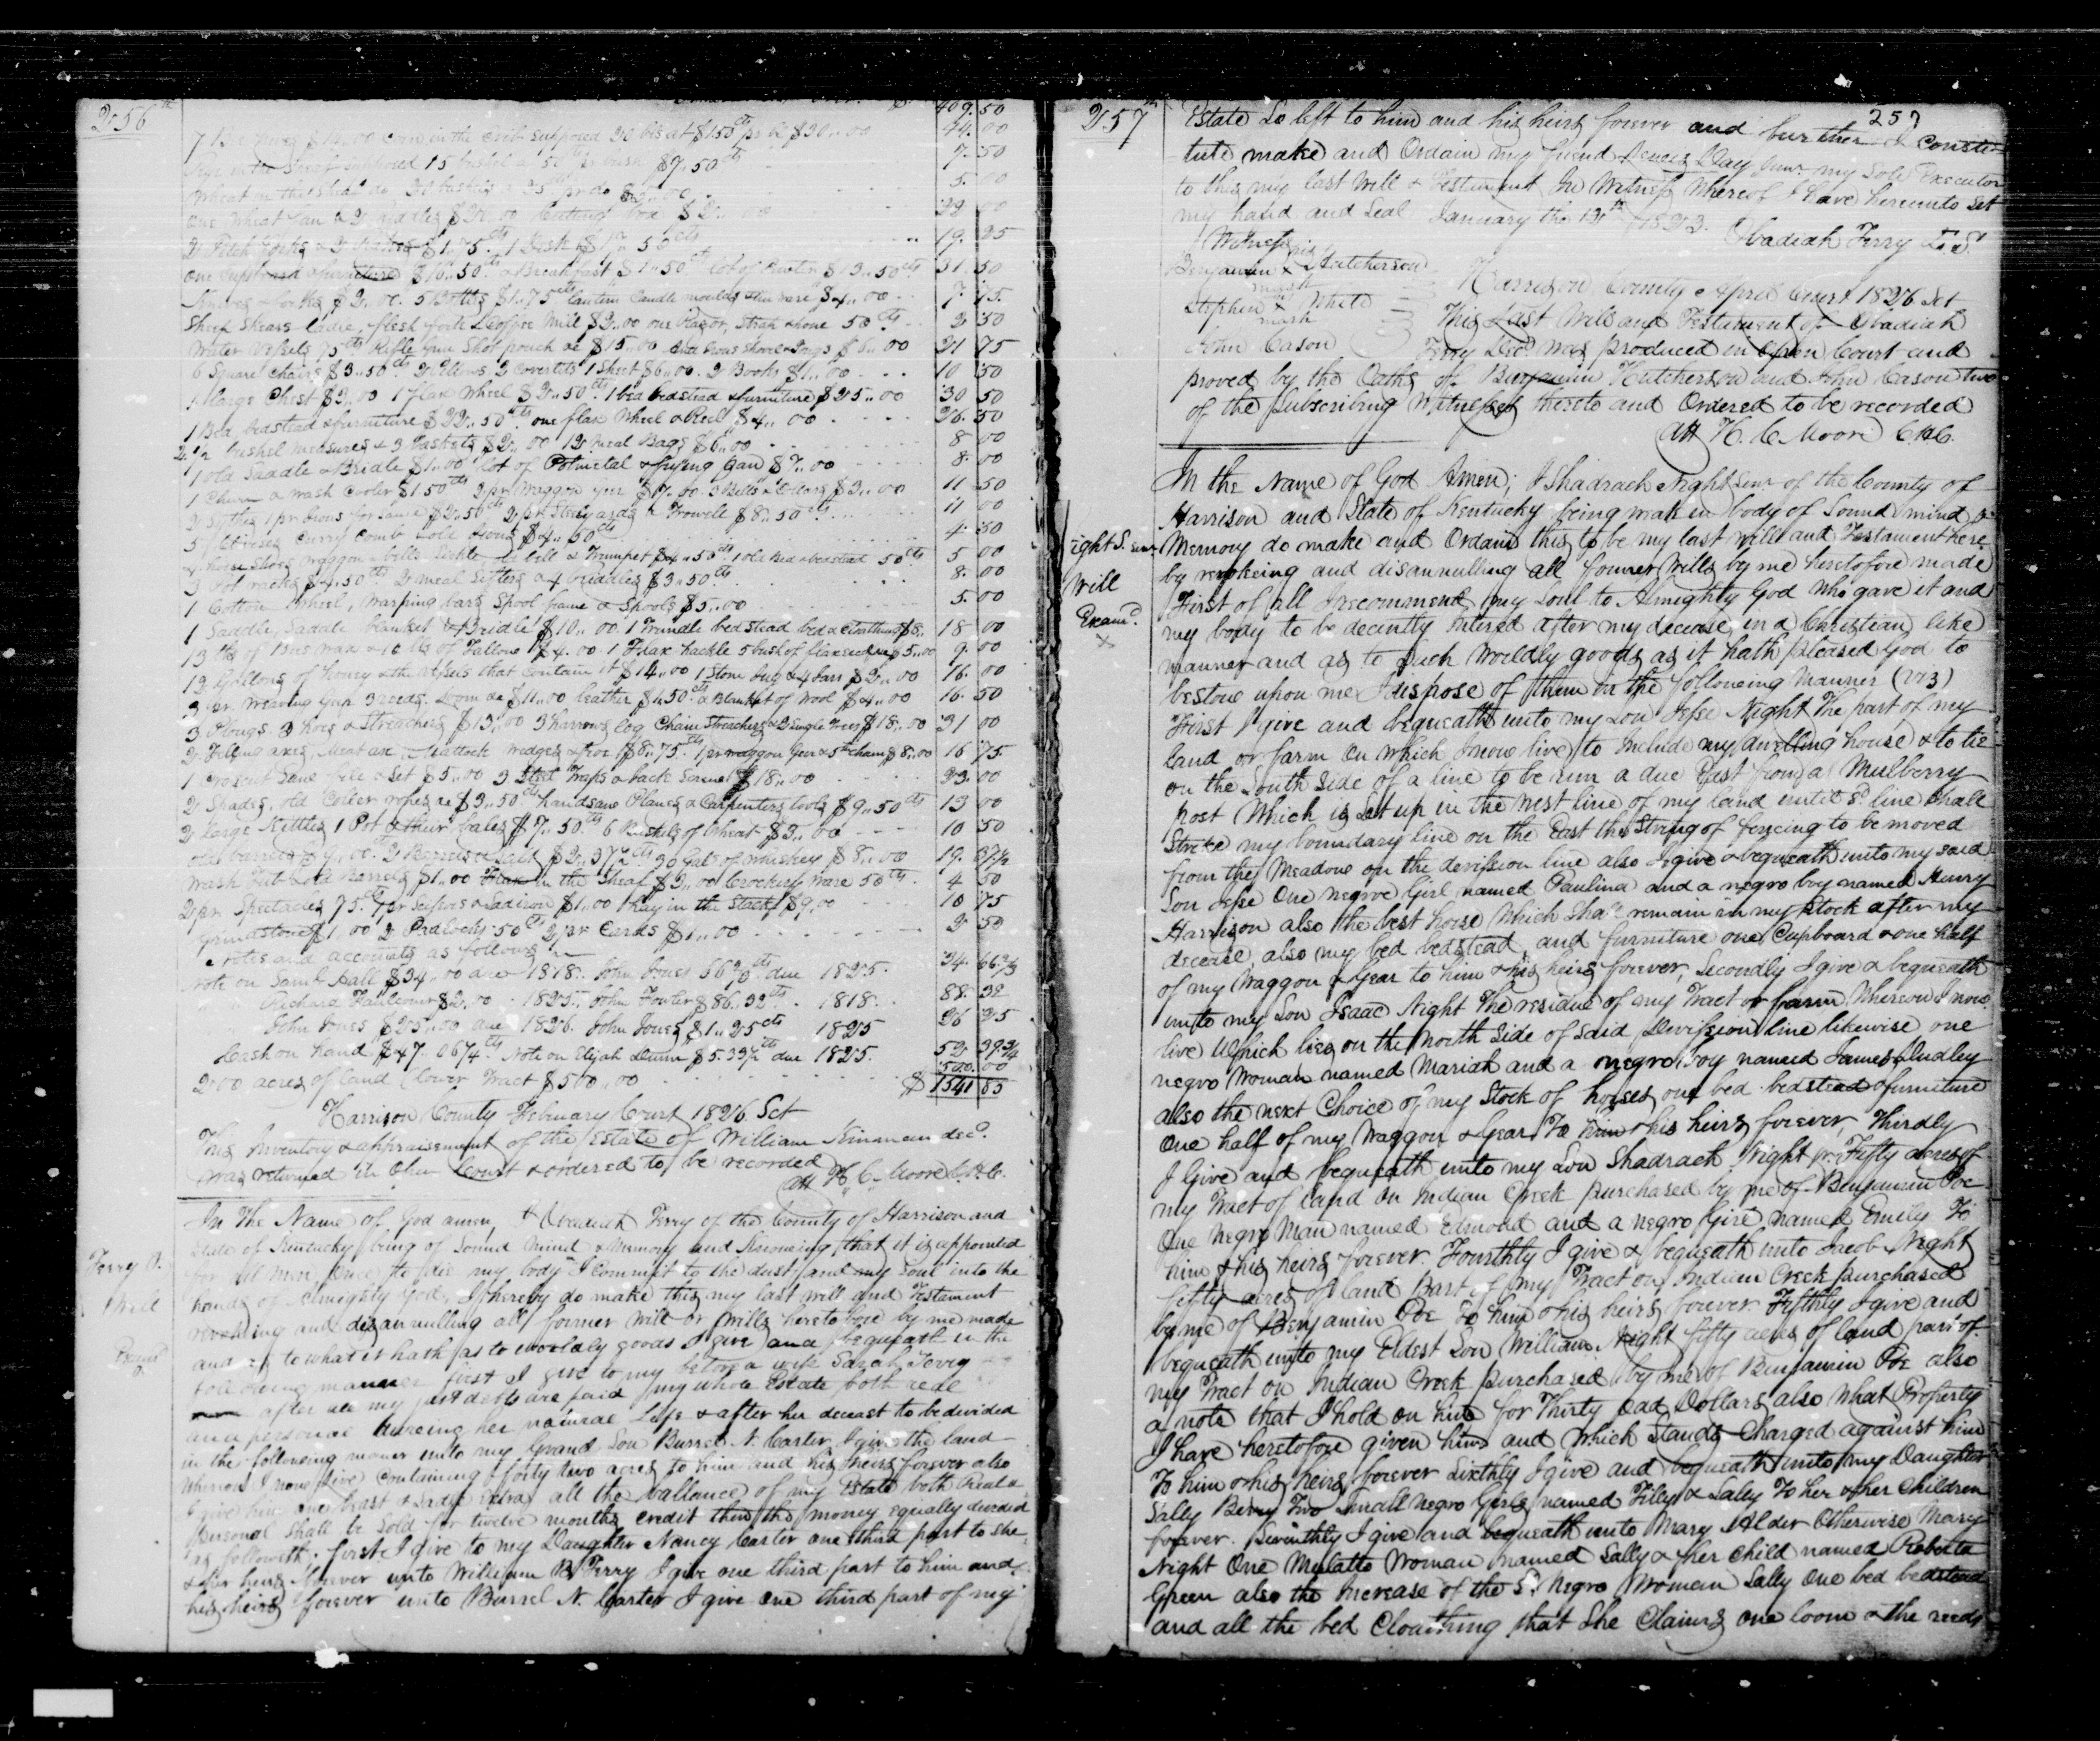 256th
409. 50
7 Bee hives $14..00 Corn in the Crib supposed 20 bls at $150cts pr bl $30..00 44. 00
Rye in the Sheaf supposed 15 bushel a 50cts pr bush $7.50cts 7. 50
Wheat in the Sheaf do 20 bushels a 25cts pr do $5..00 5. 00
One Wheat fan & 2 riddles $20..00 Cutting box $2..00 22 00
2 Pitch forks & 2 Rakes $1.75cts 1 Desk $17.50cts 19. 25
One Cupboard & furniture $16..50cts Breakfast $1..50cts lot of Pewter $13..50cts 31. 50
Knives & forks $2..00. 5 Bottles $1.75cts lantern Candle moulds & tin ware $4..00 7. 75.
Sheep Shears ladle, flesh fork & Coffee Mill $2..00 one Razor, Strap & hone 50cts 2 50
Water Vessels 75cts Rifle Gun Shot pouch &c $15..00 And Irons Shovel & Tongs $6..00 21 75
6 Square Chairs $3..50cts 2 Pillows 2 Coverlets 1 Sheet $6..00. 2 Books $1..00 10 50
1 large Chest $3..00 1 flax Wheel $2..50cts. 1 bed bedstead & furniture $25..00 30 50
1 Bed, bedstead & furniture $22..50cts one flax Wheel & Reel $4..00 26. 50
2 1/2 bushel measures & 3 Baskets $2..00 12 Meal Bags $6..00 8 00
1 old Saddle & Bridle $1..00 lot of Potmetal & frying pan $7..00 8. 00
1 Churn a wash Cooler $1 50cts 2 pr Waggon Gear $7..00. 3 Bells & Collars $3..00 11 50
2 Sythes 1 pr Irons for same $2..50cts 2 pr. Steelyards a Trowell $8..50cts 11 00
5 Chisels Curry Comb & old Irons $4..50cts 4. 50
4 horse Shoes waggon bells Sickle a bell & Trumpet $4..50cts 1 old Bed & bedstead 50cts 5 00
3 Pot racks $4.50cts 2 meal Sifters & 4 briddles $3..50cts. 8. 00
1 Cotton Wheel, Warping bars Spool frame & Spools $5..00 5. 00
1 Saddle, Saddle blanket & Bridle $10..00. 1 Trundle bed Stead bed & Cloathing $8.. 18 00
13 lbs of Bees wax & 10 lbs of Tallow $4.00 1 Flax hackle 5 bush of flaxseed $5..00 9. 00
12 Gallons of honey & the vessels that Contain it $14..00 1 Stone Jug & 4 Jars $2..00 16. 00
3 pr. Weaving Gear 3 reeds. Loom &c $11..00 leather $1.50cts a Blanket of Wool $4..00 16. 50
3 Ploughs. 3 hoes & Streachers $13..00 3 harrows log Chain Streachers & 3 Single Trees $18..00 31 00
2 Filling axes, Meat axe, Mattock wedges & froe $8..75.cts 1 pr waggon Gear & 5th chain $8..00 16 75.
1 Croscut Saw file & Set $5..00 3 Steel Traps & Jack Screw $18..00 23. 00
2 Spades, old Collar ropes &c $3..50.cts handsaw Planes & Carpenters tools $9..50cts 13 00
2 large Kettles 1 Pot & their bales $7..50.cts 6 Bushels of Wheat $3..00 10 50
old barrels $9..00.cts 2 Barrels Salt $2..37½cts 30 Gals of Whiskey $8..00 19. 37½
Wash Tub & old Barrels $1..00 Flax in the Sheaf $3..00 Crockery Ware 50cts. 4 50
2 pr Spectacles 75.cts 1 pr Scissors & Ladiron $1..00 1 hay in the Stack $9.00 10 75
Grindstone $1.00 2 Padlocks 50cts 2 pr Cards $1..00 2 50
Notes and accounts as follows
Note on Saml. Hall $34..00 due 1818. John Jones 66⅔cts due 1825. 34. 66⅔
" Richard Faulconer $2.00 . 1825. John Fowler $86..32cts . 1818. 88. 32
" John Jones $25..00 due 1826. John Jones $1..25cts 1825 26 25
Cash on hand $47. 06¼cts Note on Elijah Dunn $5.33½cts due 1825. 52 39¾
200 acres of land (lower Tract $500..00 500. 00
$ 1541 85
Harrison County February Court 1826 Sct
This Inventory & appraisement of the Estate of William Kinnman decd.
was returned in Open Court & ordered to be recorded
Att H. C. Moore C.H.C.
Terry O.
Will
Examd
In The Name of God amen, I Obadiah Terry of the County of Harrison and
State of Kentucky being of Sound Mind & Memory and Knowing that it is appointed
for all men Once to die my body I commit to the dust and my Soul into the
hands of Almighty God, I hereby do make this my last will and Testament
revoking and disannulling all former Will or Wills heretofore by me made
and as to what it hath as to worldly goods I give and bequeath in the
following manner first I give to my beloved wife Sarah Terry
after all my just debts are paid my whole Estate both real
and personal dureing her natural Life & after her deceast to be divided
in the following maner unto my Grand Son Burrel N. Carter I give the land
Whereon I now live Containing forty two acres to him and his heirs forever also
I give him one beast & Sadle Extra all the ballance of my Estate both Real &
Personal Shall be Sold for twelve months credit then the money equally devided
as followeth. first I give to my Daughter Nancy Carter one third part to she
& her heirs forever unto William B Terry I give one third part to him and
his heirs forever unto Burrel N. Carter I give one third part of my
257th
257
Estate So left to him and his heirs forever and further I Consti-
tute make and Ordain my friend Day Junr. my Sole Executor
to this my last Will & Testament In Witness Whereof I have hereunto Set
my hand and Seal January the 12th 1823. Obadiah Terry L.S.
Witness
his
Benjamin X Hutcherson
mark
Stephen X White
mark
John Cason
Harrison County April Court 1826 Sct
This Last Will and Testament of Obadiah
Terry Decd. was produced in Open Court and
proved by the Oaths of Benjamin Hutcherson and John Cason two
of the Subscribing Witnesses thereto and Ordered to be recorded
Att H. C. Moore C.H.C.
ight S. Senr
Will
Examd.
X
In the Name of God Amen; I Shadrach Night Senr of the County of
Harrison and State of Kentucky being weak in body of Sound mind &
Memory do make and Ordain this to be my last will and Testament here
by revokeing and disannulling all former Wills by me heretofore made
First of all I recommend my Soul to Almighty God Who gave it and
my body to be decently Intered after my decease in a Christian like
manner and as to Such Worldly goods as it hath pleased God to
bestow upon me I dispose of them in the following Manner (viz)
First I give and bequeath unto my Son Jesse Night The part of my
land or farm On which I now live to Include my dwelling house & to lie
on the South Side of a line to be run a due East from a Mulberry
post Which is Set up in the West line of my land until Sd line Shall
Strike my boundary line on the East the String of fencing to be moved
from the Meadow on the devission line also I give & bequeath unto my said
Son Jesse One negroe Girl named Paulina and a negro boy named Henry
Harrison also the best horse Which Shall remain in my Stock after my
decease, also my bed bedstead, and furniture one Cupboard & one half
of my Waggon & Gear to him & his heirs forever, Secondly I give & bequeath
unto my Son Isaac Night The residue of my Tract or farm Whereon I now
live Which lies on the North Side of said Devission line likewise one
negro Woman named Mariah and a negro Boy named James Dudley
also the next Choice of my Stock of horses, one bed bedstead & furniture
One half of my Waggon & Gear To him & his heirs forever, Thirdly
I Give and bequeath unto my Son Shadrach Night Jr. Fifty acres of
my Tract of land On Indian Creek purchased by me of Benjamin Poe
One Negro Man named Edmond and a negro Girl named Emily To
him & his heirs forever. Fourthly I give & bequeath unto Jacob Night
fifty acres of land Part of my Tract on Indian Creek purchased
by me of Benjamin Poe To him & his heirs forever Fifthly I give and
bequeath unto my Eldest Son William Night fifty acres of land part of
my Tract on Indian Creek purchased by me of Benjamin Poe also
a note that I hold on him for Thirty odd Dollars also What Property
I have heretofore given him and Which Stands Charged against him
To him & his heirs forever Sixthly I give and bequeath unto my Daughter
Sally Berry Two Small Negro Girls named Filly & Sally To her & her Children
forever. Seventhly I give and bequeath unto Mary Alder Otherwise Mary
Night One Mulatto Woman named Sally & her Child named Roberta
Green also the Increase of the Sd Negro Woman Sally One bed bedstead
and all the bed Cloathing that She Claims one loom & the reeds